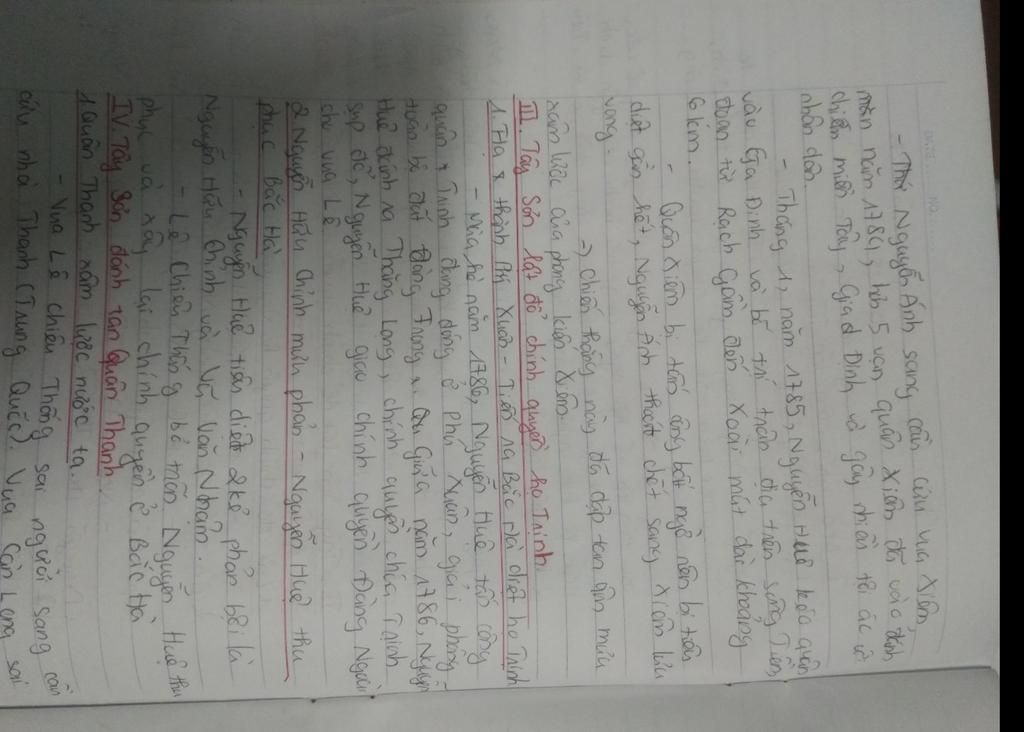 - Thứ Nguyễn Ánh sang cầu cứu vua Xiêm,
năm 1784, hơn 5 vạn quân Xiêm đã vào đánh
chiếm miền Tây, Gia Định và gây nhiều tội ác với
nhân dân.
- Tháng 1, năm 1785, Nguyễn Huệ kéo quân
vào Gia Định và bố trí trận địa trên sông Tiền,
đoạn từ Rạch Gầm đến Xoài mút dài khoảng
6 km.
- Quân Xiêm bị tấn công bất ngờ nên bị tiêu
diệt gần hết, Nguyễn Ánh thoát chết sang Xiêm lưu
vong.
=> chiến thắng này đã đập tan âm mưu
xâm lược của phong kiến Xiêm.
III. Tây Sơn lật đổ chính quyền họ Trịnh
1. Hạ thành Phú Xuân - Tiến ra Bắc Hà diệt họ Trịnh
- Mùa hè năm 1786, Nguyễn Huệ tấn công
quân Trịnh đang đóng ở Phú Xuân, giải phóng
toàn bộ đất Đàng Trong. Giữa năm 1786, Nguyễn
Huệ đánh ra Thăng Long, chính quyền chúa Trịnh
sụp đổ, Nguyễn Huệ giao chính quyền Đàng Ngoài
cho vua Lê
2. Nguyễn Hữu Chỉnh mưu phản - Nguyễn Huệ thu
phục Bắc Hà
- Nguyễn Huệ tiêu diệt 2 kẻ phản bội là
Nguyễn Hữu Chỉnh và Vũ Văn Nhậm.
- Lê Chiêu Thống bỏ trốn Nguyễn Huệ thu
phục và xây lại chính quyền ở Bắc Hà
IV. Tây Sơn đánh tan Quân Thanh
1. Quân Thanh xâm lược nước ta.
- Vua Lê Chiêu Thống sai người sang cầu
cứu nhà Thanh (Trung Quốc). Vua Càn Long sai